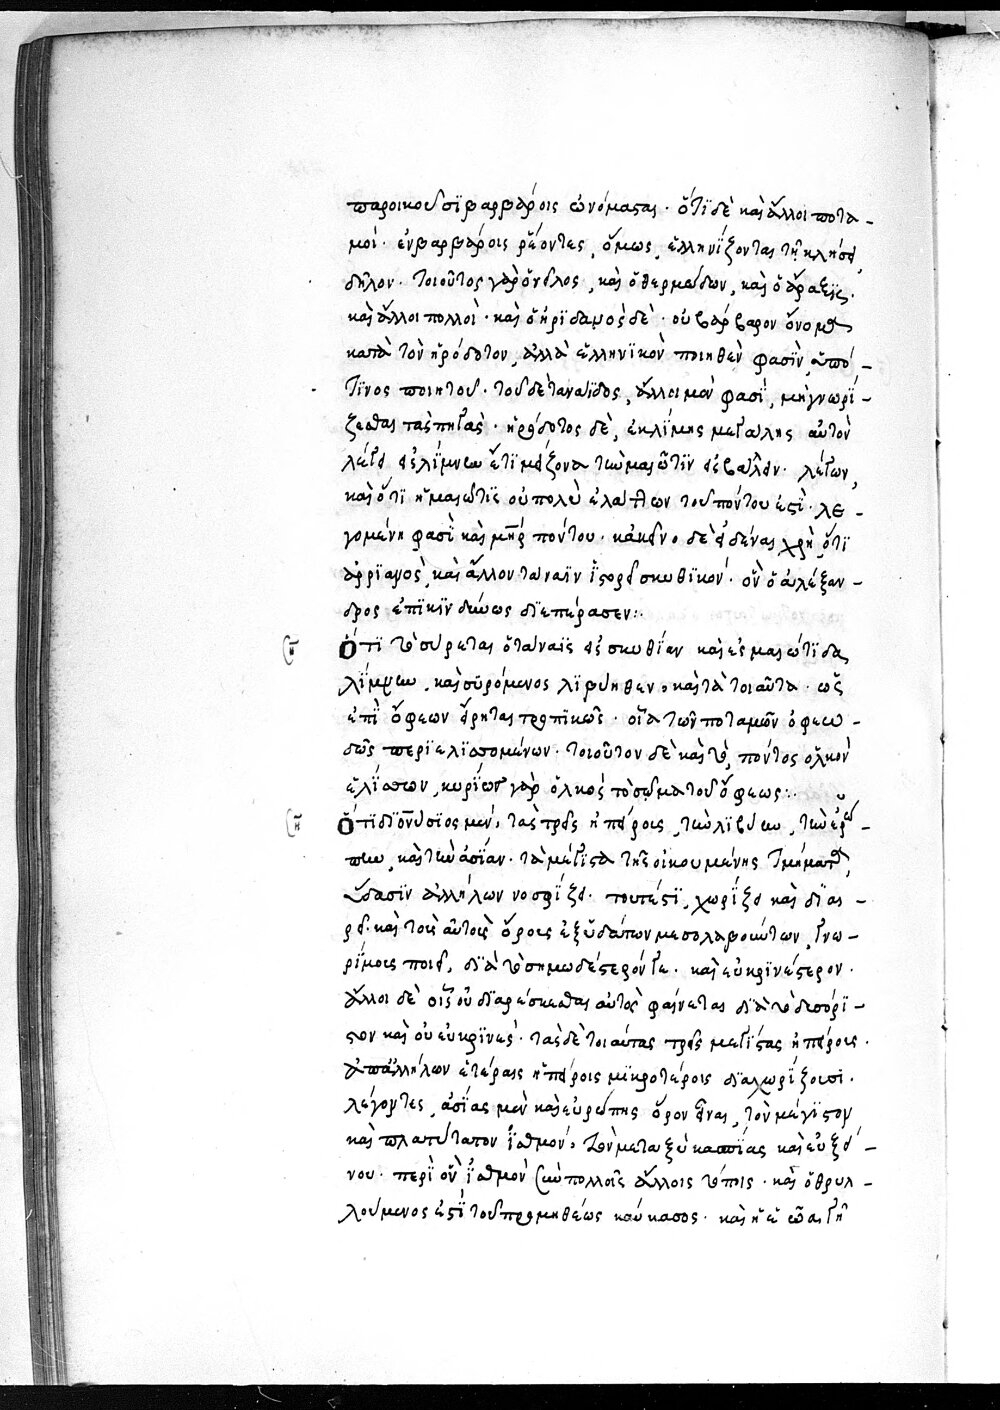 παροικοῦσι βαρβάροις ὠνόμασται· ὅτι δὲ καὶ ἄλλοι ποτα-
μοὶ· ἐν βαρβάροις ῥέοντες, ὅμως, ἑλληνίζονται τῇ κλήσει,
δῆλον· τοιοῦτος γὰρ ὁ νεῖλος, καὶ ὁ θερμώδων, καὶ ὁ ἀράξης·
καὶ ἄλλοι πολλοὶ· καὶ ὁ ἠριδανὸς δὲ· οὐ βάρβαρον ὄνομα
κατὰ τὸν ἡρόδοτον, ἀλλὰ ἑλληνικὸν ποιηθὲν φασὶν, ὑπό
τινος ποιητοῦ· τοῦ δὲ ταναΐδος, ἄλλοι μὲν φασὶ, μὴ γνωρί-
ζεσθαι τὰς πηγάς· ἡρόδοτος δὲ, ἐκ λίμνης μεγάλης αὐτὸν
λέγει εἰς λίμνην ἔτι μείζονα τὴν μαιῶτιν εἰσβάλλειν· λέγων,
καὶ ὅτι ἡ μαιῶτις οὐ πολὺ ἐλάττων τοῦ πόντου ἐστὶ· λε-
γομένη φασὶ καὶ μήτηρ πόντου· κἀκεῖνο δὲ εἰδέναι χρὴ, ὅτι
ἀρριανὸς, καὶ ἄλλον τάναϊν ἱστορεῖ σκυθικόν· ὃν ὁ ἀλέξαν-
δρος ἐπικινδύνως διεπέρασεν:
Ὅτι τὸ σύρεται ὁ τάναϊς εἰς σκυθίαν καὶ εἰς μαιώτιδα
λίμνην, καὶ συρόμενος λιβύηθεν, καὶ τὰ τοιαῦτα· ὡς
ἐπὶ ὄφεων εἴρηται τροπικῶς· οἷα τῶν ποταμῶν ὀφεω-
δῶς περιελισσομένων· τοιοῦτον δὲ καὶ τὸ, πόντος ὁλκὸν
ἑλίσσων, κυρίως γὰρ ὁλκός τὸ σῶμα τοῦ ὄφεως:
Ὅτι διονύσιος μέν, τὰς τρεῖς ἠπείρους, τὴν λιβύην, τὴν εὐρώ-
πην, καὶ τὴν ἀσίαν· τὰ μέγιστα τῆς οἰκουμένης τμήματα,
ὕδασιν ἀλλήλων νοσφίζει· τουτέστι, χωρίζει καὶ διαι-
ρεῖ· καὶ τοὺς αὐτοὺς ὅρους ἐξ ὑδάτων μεσολαβούντων, γνω-
ρίμους ποιεῖ, διὰ τὸ σημειωδέστερόν τε· καὶ εὐκρινέστερον·
ἄλλοι δὲ οἷς οὐδὲ ἀρέσκεσθαι αὐτὸς φαίνεται διὰ τὸ δυσόρι-
στον καὶ οὐκ εὐκρινές· τὰς δὲ τοιαύτας τρεῖς μεγίστας ἠπείρους·
ἀπ' ἀλλήλων ἑτέραις ἠπείροις μικροτέροις διαχωρίζουσι·
λέγοντες, ἀσίας μὲν καὶ εὐρώπης ὅρον εἶναι, τὸν μέγιστον
καὶ πλατύτατον ἰσθμόν, τὸν μεταξὺ κασπίας καὶ εὐξεί-
νου· περὶ ὃν ἰσθμὸν σὺν πολλοῖς ἄλλοις τόποις· καὶ ὁ θρυλ-
λούμενος ἐστὶ τοῦ προμηθέως καύκασος· καὶ ἡ